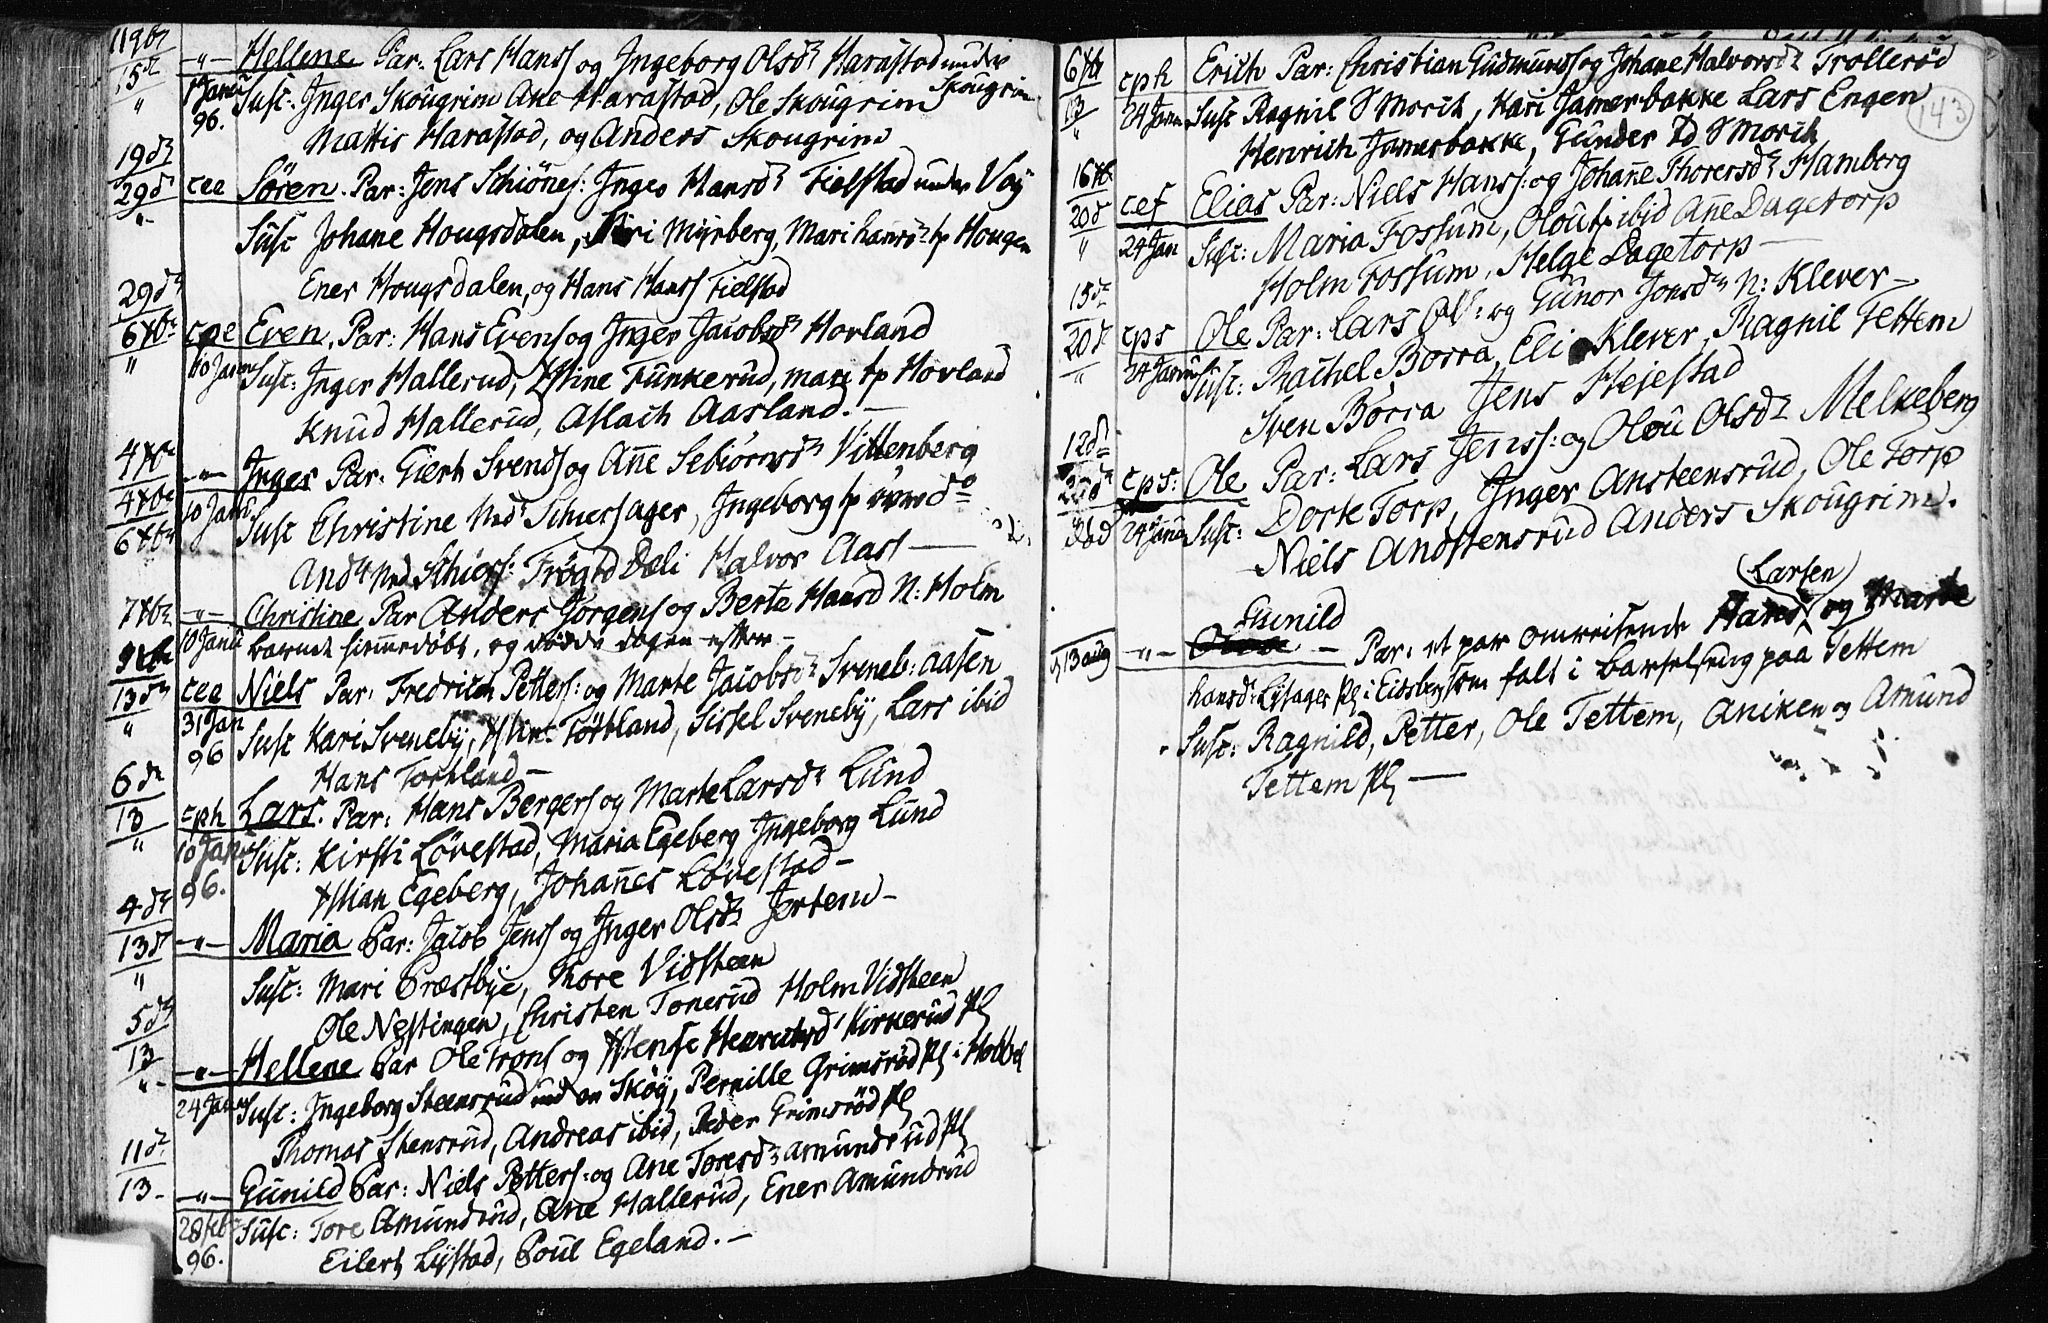 119br
15d
"
-"- Hellene Par: Lars Hanss og Ingeborg Olsdr Harastad under
Skougrim
1 Janu Susc: Inger Skougrim Ane Harastad, Ole Skougrim
96. Mattis Harastad, og Anders Skougrim
19dr
29dr cee Søren. Par: Jens Schiønes: Inger Hansdr Fielstad under Voy
-"- Susc Johane Hougsdalen, Mÿrberg, Mari hansdr fp Hougen
Ener Hougsdalen, og Hans Hanss Fielstad
29dr
6Xbr cpe Even. Par: Hans Evens og Inger Jacobsdr Hovland
" 10 Janu Susc: Inger Hallerud, Xstine Funkerud, mari fp Hovland
Knud Hallerud, Aslach Aasland. —
4Xbr
-"- Inger Par. Giert Svends og Añe Sebiörnsdr Vittenberg
4Xbr 10 Janu Susc Christine Schiersager, Ingeborg fp
6Xbr Halvor Aass —
7Xbr -"- Christine Par Anders Jörgens og Berte Hansd N: Holm
10 Janu barnet hiemmedøbt, og døde dagen efter —
9Xbr
13dr cee Niels Par: Fredrich Petters: og Marte Jacobsdr Sveneb: aasen
" 31 Jan Susc Kari Svenebÿ, Xstine Törtland, Sissel Svenebÿ, Lars ibid
96 Hans Tortland —
6dr
13 cph Lars. Par: Hans Bergers og Marte Larsdr Lund
" 10 Janu Susc: Kirsti Lövestad, Maria Egeberg Ingeborg Lund
96. Xstian Egeberg, Johañes Lövestad —
4dr
13d -"- Maria Par: Jacob Jenss og Inger Olsdr Jertem —
" Susc: Mari Præstbÿe, Thore Vidsteen
Ole Nestingen, Christen Tonerud Holm Vidsteen
5dr
13 -"- Hellene Par Ole Trons og Xstense Henrichsd Kirkerud Pl
"- 24 Janu Susc: Ingeborg Steensrud Sköÿ, Pernille Grimsröd Pl i Hobbel
Thomas Stensrud, Andreas ibid, Peder Grimsröd Pl
11dr
13 - -"- Gunild Par: Niels Petters: og Ane Toresdr amundsrud Pl
28 feb Susc: Tore Amundrud, Ane Hallerud, Ener Amundrud
96. Eilert Lÿstad, Poul Egeland. —
143
6Xbr
13 cph Erich Par: Christian Gudmunds og Johane Halvorsdr Trollerød
" 24 Janu Susc Ragnil Morch, Kari Jamerbakke Lars Engen
Henrich Jamerbakke, Gunder Morch
16Xbr
20d cef Elias Par: Niels Hanss: og Johañe Thorersdr Hamberg
" 24 Jan Susc: Maria Fossum, Olou fp ibid Añe Dagetorp
Holm Fossum, Helge Dagetorp —
15dr
20dr cps Ole Par: Lars Ols: og Gunor Jonsdr N: Klever —
" 24 Janu Susc: Rachel Borra, Eli Klever, Ragnil Tettem
Sven Borra Jens Hejestad
12dr
20dr cps: Ole Par: Lars Jenss: og Olou Olsdr Melkeberg
24 Janu Susc: Dorte Torp, Inger Ansteensrud, Ole Torp
Niels Andstensrud Anders Skougrim.
Gunild (Larsen)
13 aug -"- — Par: et par omreisende Hans, og Marte
hansdr Lÿsager Pl i Eidsberg som falt i barselseng paa Tettem
Susc: Ragnild, Petter, Ole Tettem, Aniken og Amund
Tettem Pl —